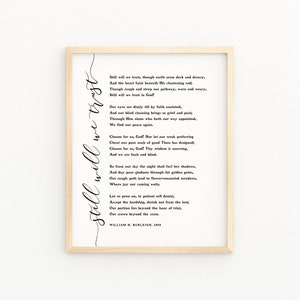 still will we trust
Still will we trust, though earth seem dark and dreary,
And the heart faint beneath His chastening rod;
Though rough and steep our pathway, worn and weary,
Still will we trust in God!
Our eyes see dimly till by faith anointed,
And our blind choosing brings us grief and pain;
Through Him alone who hath our way appointed,
We find our peace again.
Choose for us, God! Nor let our weak preferring
Cheat our poor souls of good Thou hast designed;
Choose for us, God! Thy wisdom is unerring,
And we are fools and blind.
So from our sky the night shall furl her shadows,
And day pour gladness through his golden gates,
Our rough path lead to flower-enameled meadows,
Where joy our coming waits.
Let us press on, in patient self denial,
Accept the hardship, shrink not from the loss;
Our portion lies beyond the hour of trial,
Our crown beyond the cross.
WILLIAM H. BURLEIGH,